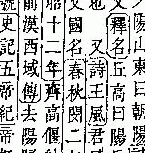 陽山東曰朝
釋名丘高曰陽
也 又詩王風君
又國名春秋閔二
昭十二年齊高偃
前漢西域傳去陽
號史記五帝紀帝